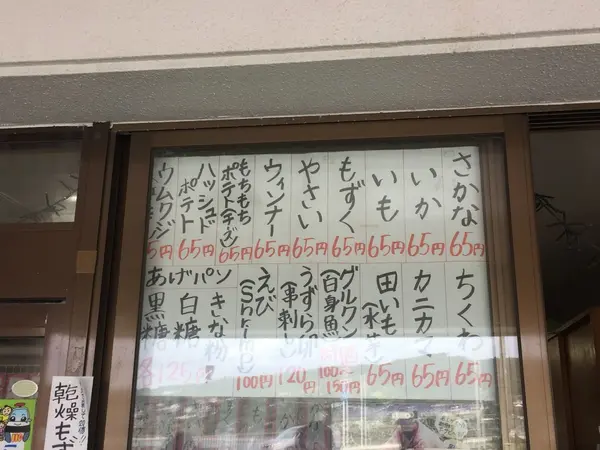 さかな 65円
いか 65円
いも 65円
もずく 65円
やさい 65円
ウィンナー 65円
もちもちポテト(チーズ) 65円
ハッシュドポテト 65円
ウムクジ 5円
ちくわ 65円
カニカマ 65円
田いも(水芋) 65円
グルクン(白身魚) 100円 150円
うずら卵(串刺し) 120円
えび(Shrimp) 100円
あげパン
きいな粉
白糖
黒糖
各125円
乾燥もず